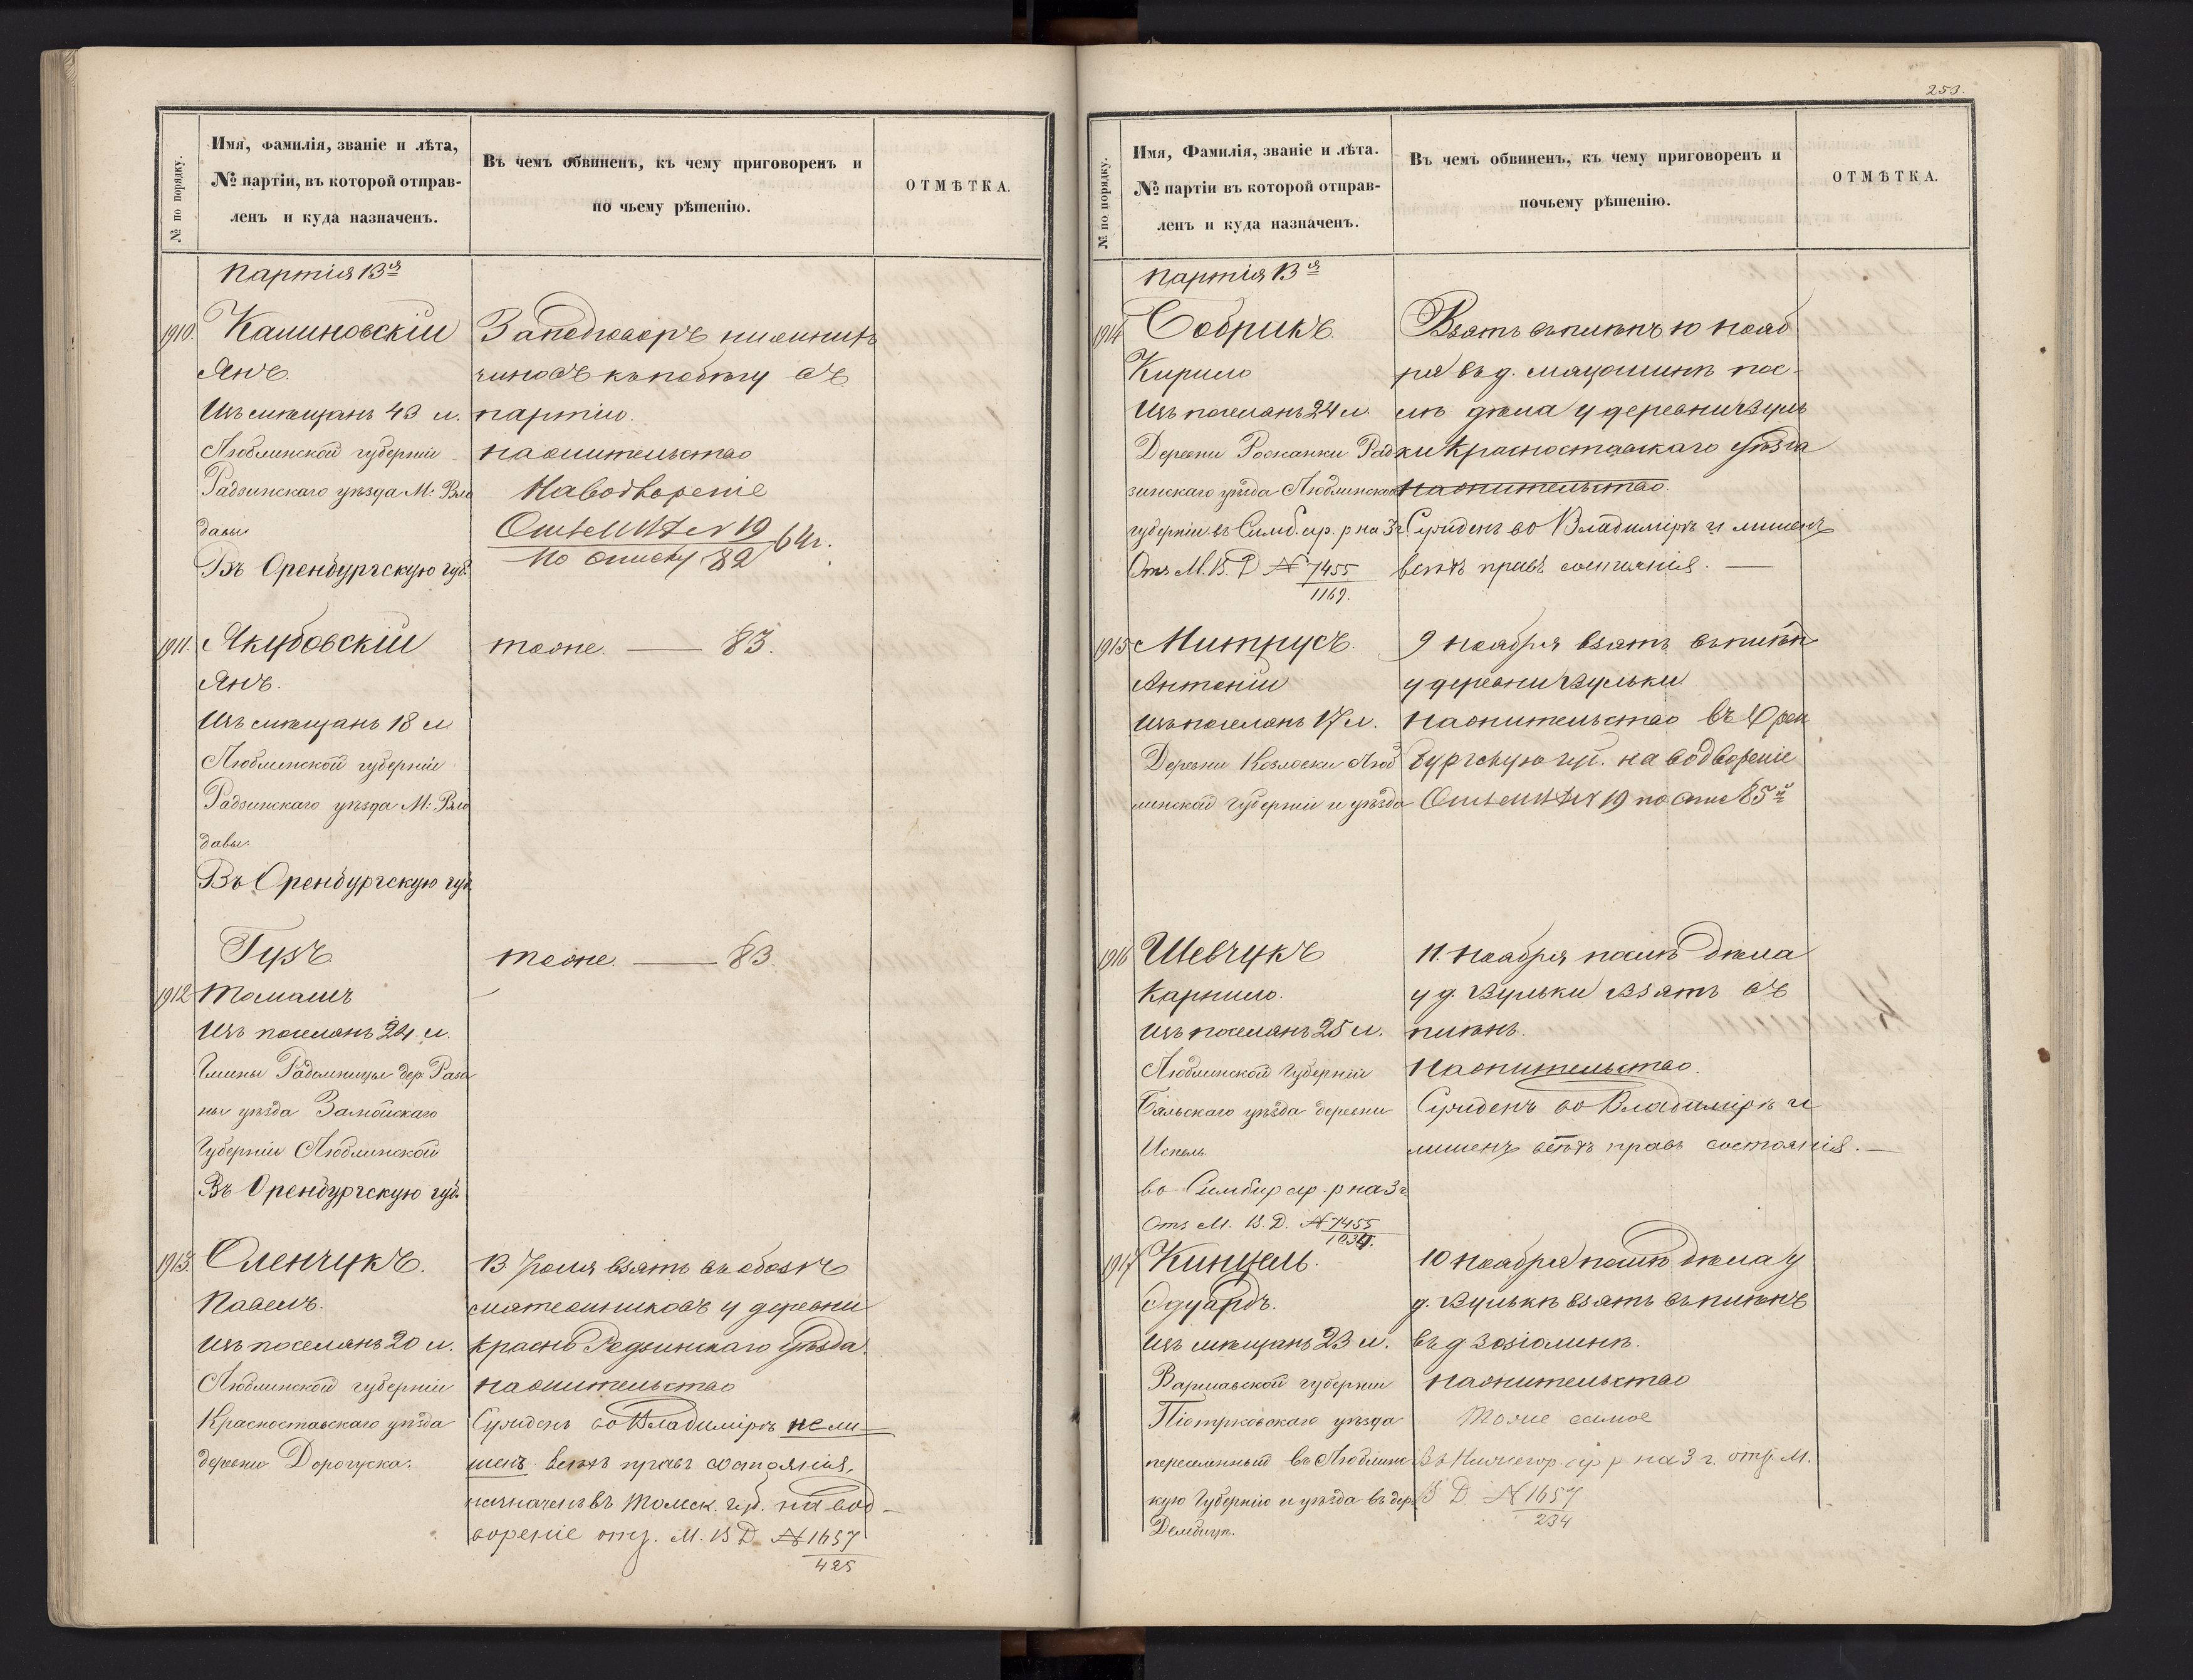 № по порядку.
Имя, фамилія, званіе и лѣта,
№ партіи, въ которой отправ-
ленъ и куда назначенъ.
Въ чемъ обвиненъ, къ чему приговоренъ и
по чьему рѣшенію.
ОТМѢТКА.
Партія 13я
1910. Калиновскій
Янъ.
Изъ мѣщанъ 43 л.
Люблинской губерніи
Радзинскаго уѣзда М: Вло
давы
Въ Оренбургскую губ.
За подговоръ нижнихъ
чиновъ къ побѣгу въ
партію.
На жительство
На водворение
19 64 г.
По списку 82
1911. Якубовскій
Янъ.
Изъ мѣщанъ 18 л
Люблинской губерніи
Радзинскаго уѣзда М: Вло
давы.
Въ Оренбургскую губ
тоже. — 83.
Гузъ
1912 Томашъ
Изъ поселянъ 24 л.
Гмины дер.
ны уѣзда Замойскаго
Губерніи Люблинской
Въ Оренбургскую губ.
тоже. — 83.
1913. Оленчукъ.
Павелъ.
Изъ поселянъ 20 л.
Люблинской губерніи
Красноставскаго уѣзда
деревни Дорогуска.
13 Іюля взятъ въ обозѣ
мятежниковъ у деревни
Красно Радзинскаго уѣзда.
На жительство
Сужденъ во Владимірѣ не ли-
шенъ всѣхъ правъ состоянія,
назначенъ въ Томск. губ. на вод-
вореніе отз. М. В Д № 1657
425
253.
№ по порядку.
Имя, Фамилія, званіе и лѣта.
№ партіи въ которой отправ-
ленъ и куда назначенъ.
Въ чемъ обвиненъ, къ чему приговоренъ и
почьему рѣшенію.
ОТМѢТКА.
Партія 13я
1914 Собрикъ.
Кирило
Изъ поселянъ 24 л.
Деревни Росканки Рад
зинскаго уѣзда Люблинской
губерніи въ Симб. ар. р на 3 г.
Отз М. В. Д № 7455
1169.
Взятъ въ плѣнъ 10 нояб
ря въ д. пос-
лѣ дѣла у деревни Вуль
ки Красноставскаго уѣзда
На жительство
Сужденъ во Владимірѣ и лишенъ
всѣхъ правъ состоянія. —
1915 Митрусъ.
Антоній
Изъ поселянъ 17 л.
Деревни Козловки Люб
линской губерніи и уѣзда
9 ноября взятъ въ плѣнъ
у деревни Вульки
На жительство въ Орен
бургскую губ. на водвореніе
19 по спис 85й
1916 Шевчукъ
Карпило.
Изъ поселянъ 25 л.
Люблинской Губерніи
Бяльскаго уѣзда деревни
во Симбир ар. р на 3 г
Отз М. В. Д. № 7455
11 Ноября послѣ дѣла
у д. Вульки взятъ въ
плѣнъ.
На жительство.
Сужденъ во Владимірѣ и
лишенъ всѣхъ правъ состоянія. —
1917 Кинцель.
Эдуардъ.
Изъ мѣщанъ 23 л.
Варшавской губерніи
Піотрковскаго уѣзда
переселенный въ Люблинс
кую Губернію и уѣзда въ дер.
10 ноября послѣ дѣла у
д. Вулькѣ взятъ въ плѣнъ
въ д.
На жительство
Тоже самое
Въ Нижегор. ар р на 3 г. отз. М.
В Д. № 1657
234